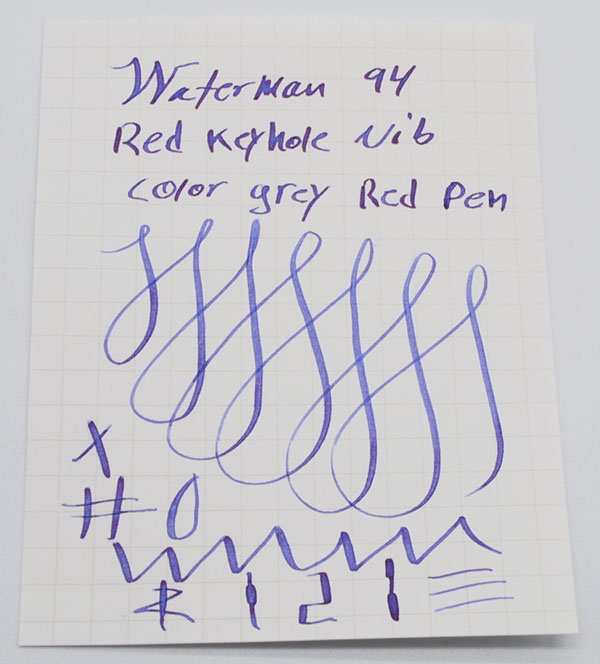 Waterman 94
Red Keyhole Nib
color grey Red Pen
X
# 0
R 1 2 1